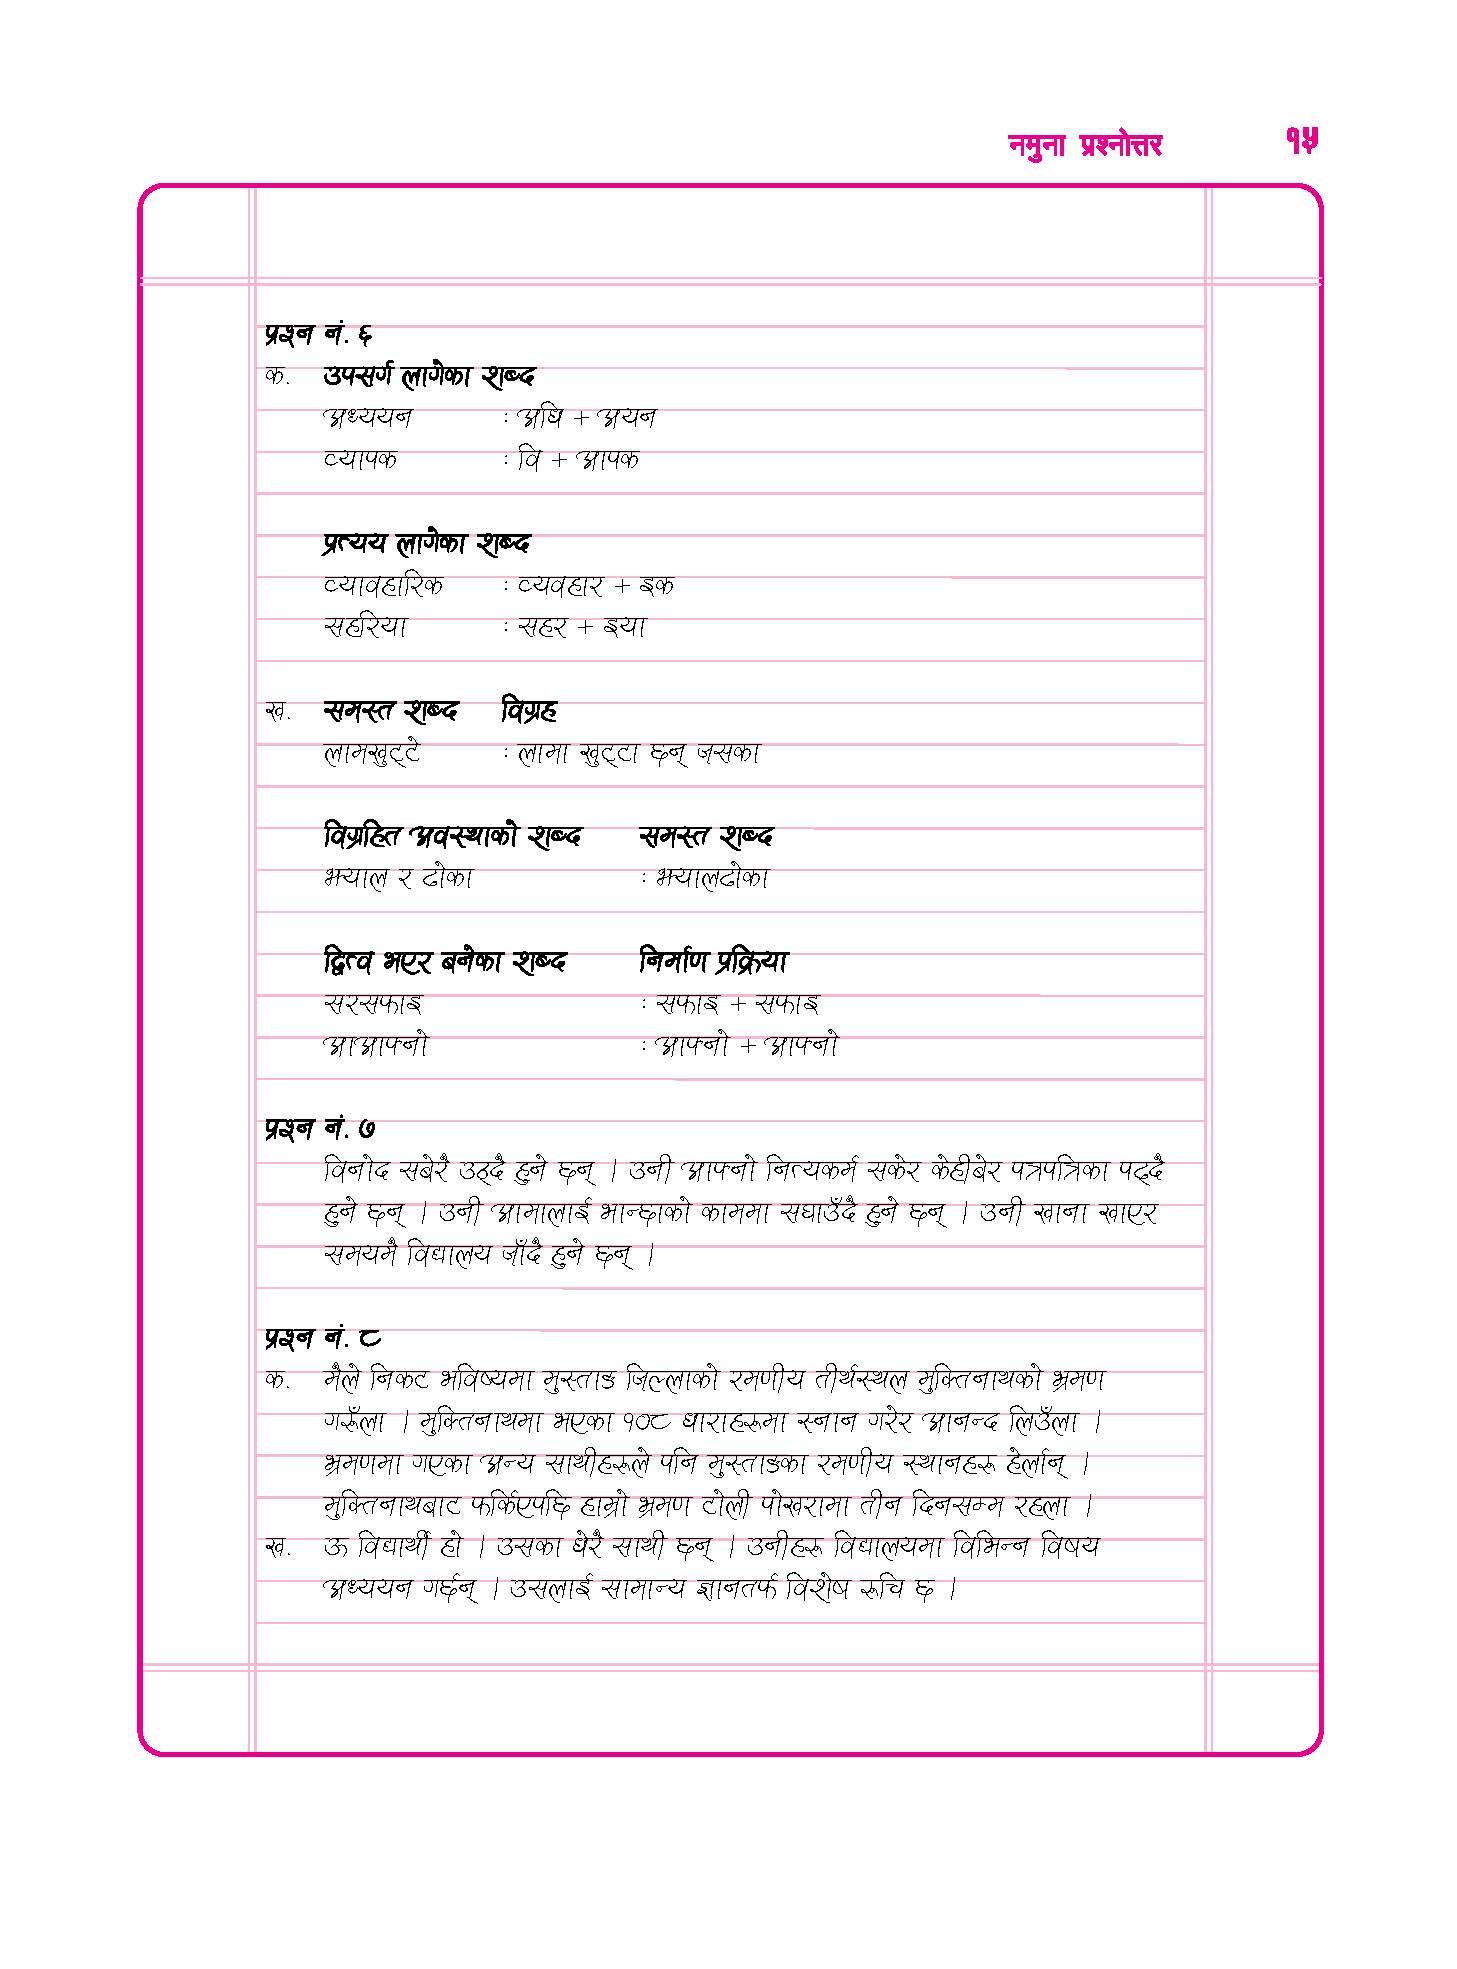 नमुना प्रश्नोत्तर १५
प्रश्न नं. ६
क. उपसर्ग लागेका शब्द
अध्ययन : अधि + अयन
व्यापक : वि + आपक
प्रत्यय लागेका शब्द
व्यावहारिक : व्यवहार + इक
सहरिया : सहर + इया
ख. समस्त शब्द विग्रह
लामखुट्टे : लामा खुट्टा छन् जसका
विग्रहित अवस्थाको शब्द समस्त शब्द
झ्याल र ढोका : झ्यालढोका
द्वित्व भएर बनेका शब्द निर्माण प्रक्रिया
सरसफाइ : सफाइ + सफाइ
आआफ्नो : आफ्नो + आफ्नो
प्रश्न नं. ७
विनोद सबेरै उठ्दै हुने छन् । उनी आफ्नो नित्यकर्म सकेर केहीबेर पत्रपत्रिका पढ्दै
हुने छन् । उनी आमालाई भान्छाको काममा सघाउँदै हुने छन् । उनी खाना खाएर
समयमै विद्यालय जाँदै हुने छन् ।
प्रश्न नं. ८
क. मैले निकट भविष्यमा मुस्ताङ जिल्लाको रमणीय तीर्थस्थल मुक्तिनाथको भ्रमण
गरुँला । मुक्तिनाथमा भएका १०८ धाराहरूमा स्नान गरेर आनन्द लिउँला ।
भ्रमणमा गएका अन्य साथीहरूले पनि मुस्ताङका रमणीय स्थानहरू हेर्लान् ।
मुक्तिनाथबाट फर्किएपछि हाम्रो भ्रमण टोली पोखरामा तीन दिनसम्म रहला ।
ख. ऊ विद्यार्थी हो । उसका धेरै साथी छन् । उनीहरू विद्यालयमा विभिन्न विषय
अध्ययन गर्छन् । उसलाई सामान्य ज्ञानतर्फ विशेष रूचि छ ।